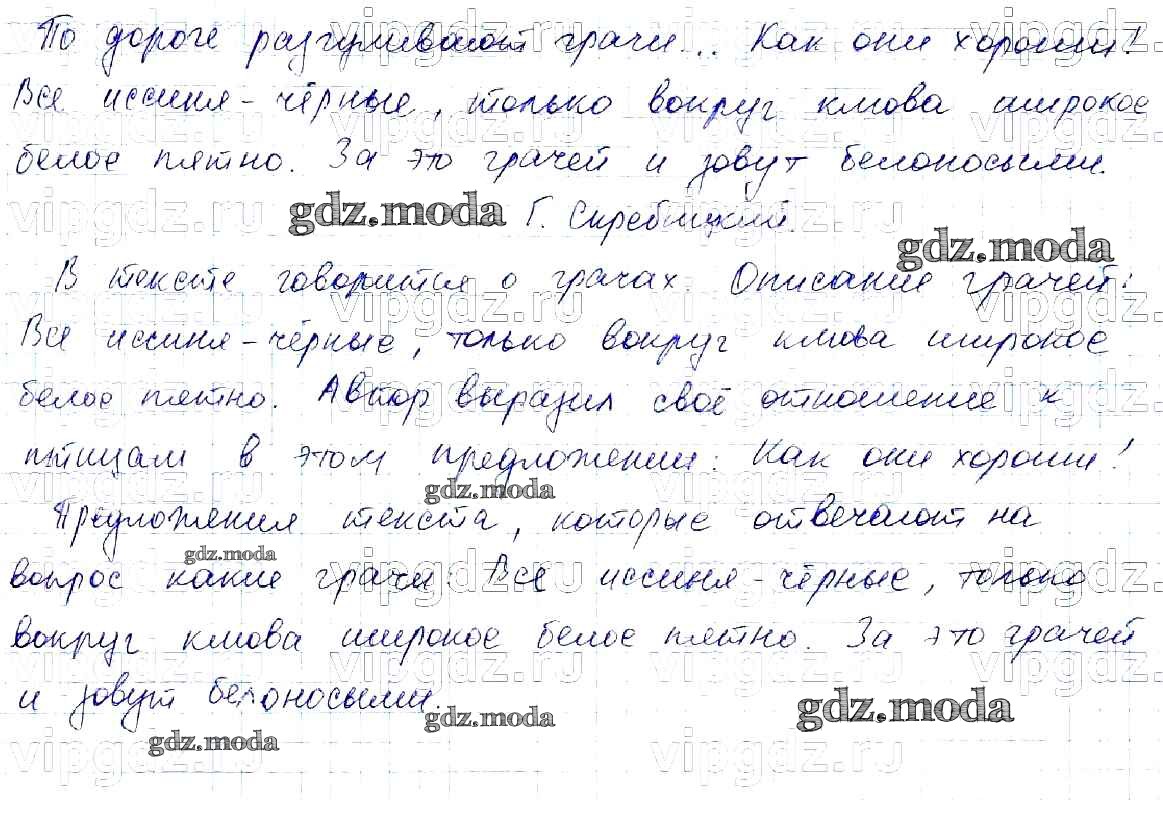 По дороге разгуливают грачи... Как они хороши!
Все иссиня-чёрные, только вокруг клюва широкое
белое пятно. За это грачей и зовут белоносыми.
gdz.moda Г. Скребицкий.
gdz.moda
В тексте говорится о грачах. Описание грачей:
Все иссиня-чёрные, только вокруг клюва широкое
белое пятно. Автор выразил своё отношение к
птицам в этом предложении: Как они хороши!
gdz.moda
Предложения текста, которые отвечают на
gdz.moda
вопрос какие грачи: Все иссиня-чёрные, только
вокруг клюва широкое белое пятно. За это грачей
и зовут белоносыми.
gdz.moda gdz.moda
gdz.moda
vipgdz.ru